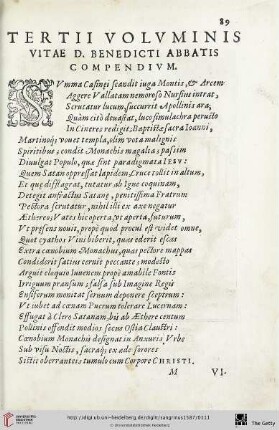 89
TERTII VOLVMINIS
VITAE D. BENEDICTI ABBATIS
COMPENDIVM.
SVmma Casinei scandit iuga Montis, & Arcem
Aggere Vallatam nemoroso Nursine intrat,
Scrutatur lucum, succurrit Apollinis ara,
Quàm citò deuastat, luco simulachra perusto
In Cineres redigit, Baptistæ sacra Ioanni,
Martinoq; vouet templa, olim vota malignis
Spiritibus; condit Monachis magalia; passim
Diuulgat Populo, quæ sint paradigmata IESV:
Quem Satan oppressat lapidem, Cruce tollit in altum,
Et quæ disflagrat, tutatur ab igne coquinam,
Deteget anfractus Satanæ, penitissima Fratrum
Pectora scrutatur, nihil illi ex axe negatur
Æthereo; Vates hic operta, vt aperta, futurum,
Vt præsens nouit, propè quod procul est videt omne,
Quot cyathos Vini biberit, quas ederit escas
Extra cænobium Monachus, quas pectore mappas
Condiderit satiens cernit peccante; modesto
Arguit eloquio Iuuenem propè amabile Fontis
Irriguum pransum; falsa sub Imagine Regis
Ensiferum monitat ferrum deponere septum:
Vt iubet ad cænam Puerum tolerare Lucernam:
Effugat à Clero Satanam, bis ab Æthere centum
Pollinis offendit modios secus Ostia Claustri:
Cænobium Monachis designat in Anxuris Vrbe
Sub visu Noctis, sacrasq; ex æde sorores
Sistit oberrantes tumulo cum Corpore CHRISTI.
M VI.
http://digi.ub.uni-heidelberg.de/diglit/sangrinus1587/0111
© Universitätsbibliothek Heidelberg
The Getty